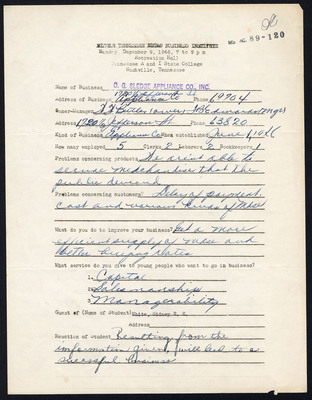 MS. AC. 89-120
MIDDLE TENNESSEE NEGRO BUSINESS INSTITUTE
Monday December 9, 1946, 7 to 9 p m
Recreation Hall
Tennessee A and I State College
Nashville, Tennessee
Name of Business D. G. SLEDGE APPLIANCE CO., INC.
Address of Business Appliance Co Phone 69704
Owner-Manager
Address Jefferson St Phone 63820
Kind of Business Appliance Co When established June 1, 1946
How many employed 5 Clerks 2 Laborers 2 Bookkeepers 1
Problems concerning products We aren't able to
secure merchandise that the
public demand
Problems concerning customers? Delay of payment
cost and various kinds of Mdse
What do you do to improve your business? Get a more
efficient supply of mdse and
better buying rates
What service do you give to young people who want to go in business?
1. Capital
2. Salesmanship
3. Managerability
Guest of (Name of Student) White, Sidney E. E.
Address
Reaction of Student Resulting from the
information given, will lead to a
successful business